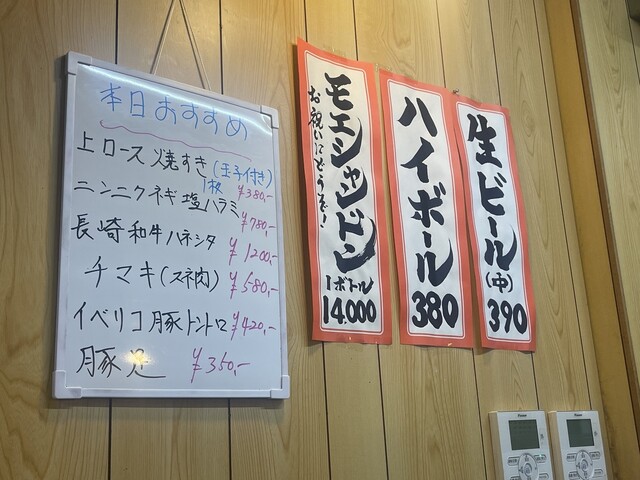 本日おすすめ
上ロース焼すき(玉子付き)
1枚 ¥380,-
ニンニクネギ塩ハラミ ¥780,-
長崎和牛ハネシタ ¥1200,-
チマキ(スネ肉) ¥580,-
イベリコ豚トントロ ¥420,-
豚足 ¥350,-
モエシャンドン
お祝いにどうぞ!
1ボトル
14.000
ハイボール
380
生ビール(中)
390